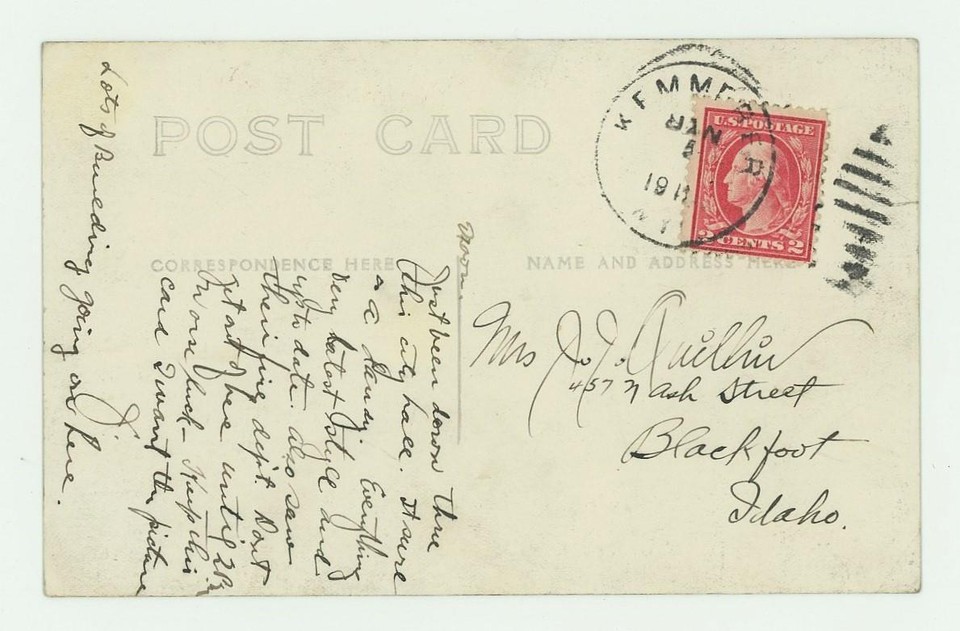 POST CARD
KEMMERER
U.S. POSTAGE
2 CENTS 2
CORRESPONDENCE HERE
NAME AND ADDRESS HERE
Noon.
Just been down thru
this city hall. It sure
is a dandy. Everything
very latest style and
up to date. Also saw
their fire dept. Dont
get out of here until 2 P.M.
worse luck - Keep this
card I want the picture
J.
Lots of Building going on here.
Mrs J. J. Quillin
457 N Ash Street
Blackfoot
Idaho.